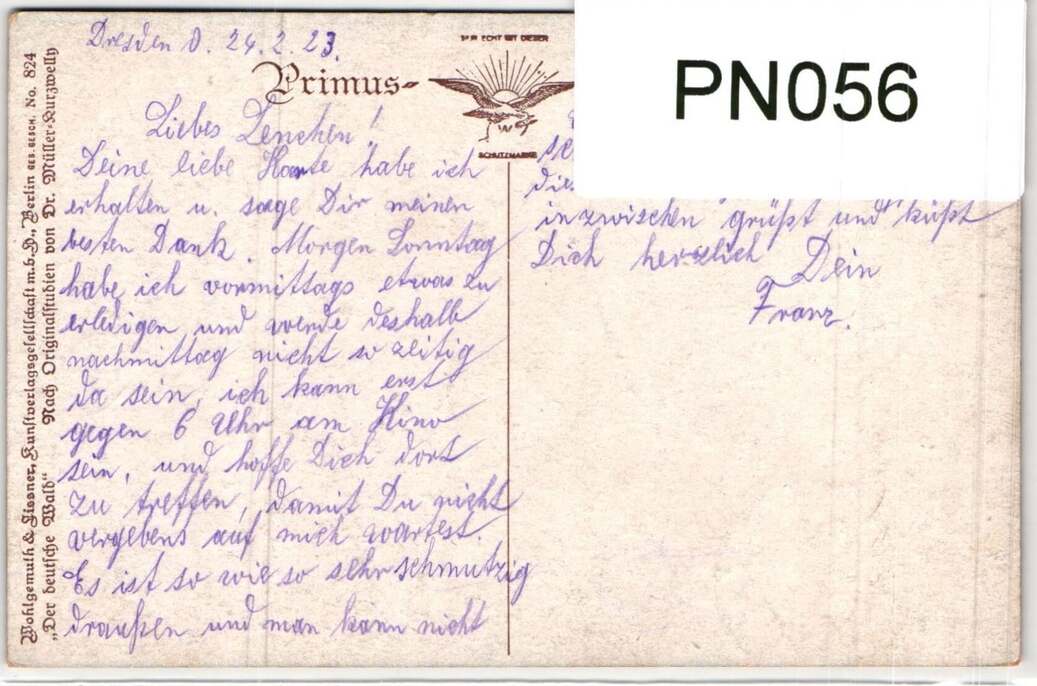 Dresden D. 24.2.23.
Primus-
NUR ECHT MIT DIESER
SCHUTZMARKE
PN056
Liebes Lenchen!
Deine liebe Karte habe ich
erhalten u. sage Dir meinen
besten Dank. Morgen Sonntag
habe ich vormittags etwas zu
erledigen und werde deshalb
nachmittag nicht so zeitig
da sein, ich kann erst
gegen 6 Uhr am Kino
sein, und hoffe Dich dort
zu treffen, damit Du nicht
vergebens auf mich wartest.
Es ist so wie so sehr schmutzig
draußen und man kann nicht
inzwischen grüßt und küßt
Dich herzlich Dein
Franz.
Wohlgemuth & Lissner, Kunstverlagsgesellschaft m.b.H., Berlin GES. GESCH. No. 824
„Der deutsche Wald“ Nach Originalstudien von Dr. Müller-Kurzwelly